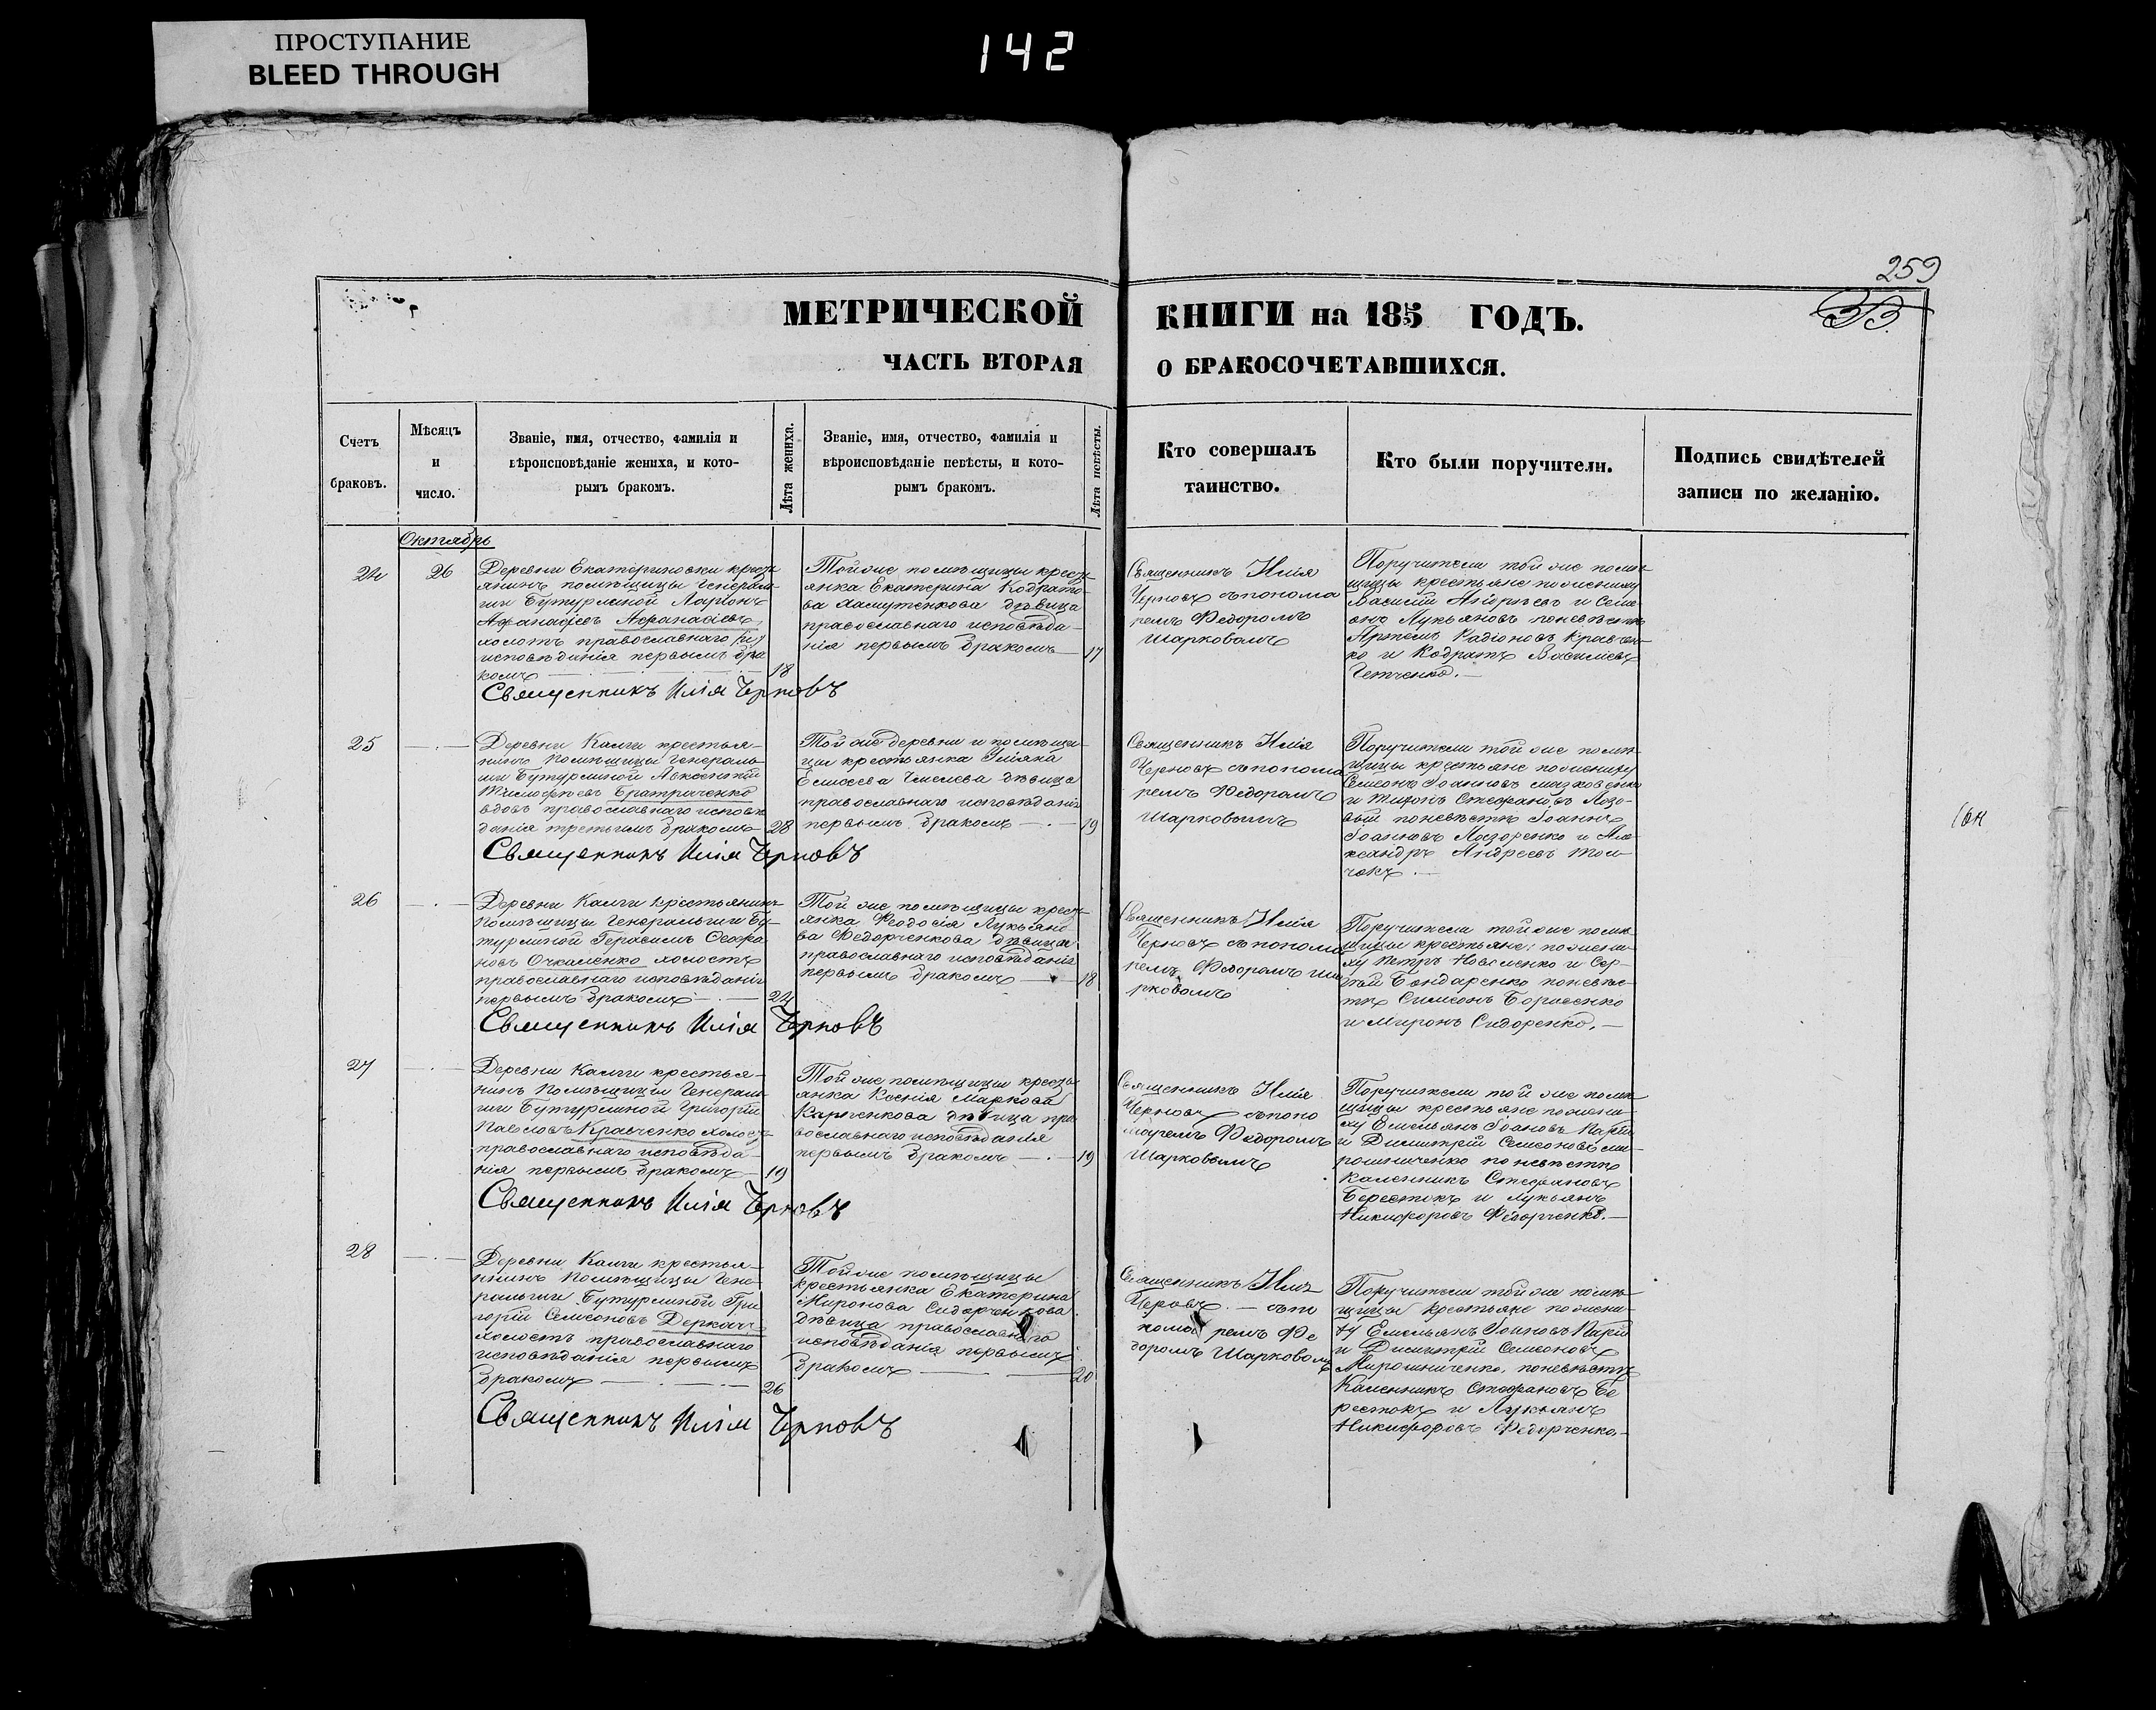 ПРОСТУПАНИЕ
BLEED THROUGH
142
259
33
МЕТРИЧЕСКОЙ КНИГИ на 185 ГОДЪ.
ЧАСТЬ ВТОРАЯ О БРАКОСОЧЕТАВШИХСЯ.
Счетъ
браковъ.
Мѣсяцъ
и
число.
Званіе, имя, отчество, фамилія и
вѣроисповѣданіе жениха, и кото-
рымъ бракомъ.
Лѣта жениха.
Званіе, имя, отчество, фамилія и
вѣроисповѣданіе невѣсты, и кото-
рымъ бракомъ.
Лѣта невѣсты.
Кто совершалъ
таинство.
Кто были поручители.
Подпись свидѣтелей
записи по желанію.
Октябрь
24
26
Деревни Екатериновки кресть
янинъ помѣщицы Генераль
ши Бутурлиной Ларіонъ
Афанасіевъ Афанасіевъ
холостъ православнаго
исповѣданія первымъ бра
комъ
18
Священникъ Илія Черновъ
Тойже помѣщицы кресть-
янка Екатерина Кодрато-
ва дѣвица
православнаго исповѣда-
нія первымъ бракомъ
17
Священникъ Илія
Черновъ съ понома
ремъ Федоромъ
Шарковымъ
Поручители той же помѣ
щицы крестьяне по жениху
Василій Андреевъ и Семе
онъ Лукьяновъ по невѣстѣ
Артемъ Радіоновъ Кравчен
ко и Кодратъ Васильевъ
25
Деревни Калги крестья-
нинъ помѣщицы Генераль-
ши Бутурлиной Авксентій
Тимофѣевъ Братраченко
вдовъ православнаго исповѣ
данія третьимъ бракомъ
28
Священникъ Илія Черновъ
Той же деревни и помѣщи-
цы крестьянка Уліяна
Елисѣева дѣвица
православнаго исповѣданія
первымъ бракомъ
19
Священникъ Илія
Черновъ съ понома
ремъ Федоромъ
Шарковымъ
Поручители той же помѣ-
щицы крестьяне по жениху
Семеонъ Іоанновъ
и Стефановъ Лозо-
вый по невѣстѣ Іоаннъ
Іоанновъ Лазоренко и Але
ксандръ Андреевъ Тол-
чокъ
26
Деревни Калги крестьянинъ
помѣщицы Генеральши Бу-
турлиной Герасимъ
новъ Очкаленко холостъ
православнаго исповѣданія
первымъ бракомъ
24
Священникъ Илія Черновъ
Той же помѣщицы кресть-
янка Феодосія Лукьяно-
ва Федорченкова дѣвица
православнаго исповѣданія
первымъ бракомъ
18
Священникъ Илія
Черновъ съ понома
ремъ Федоромъ Ша
рковымъ
Поручители той же помѣ
щицы крестьяне: по жени-
ху Петръ и Сер-
гѣй Бондаренко по невѣс-
тѣ Симеонъ Борисенко
и Миронъ Сидоренко.
27
Деревни Калги крестья-
нинъ помѣщицы Генераль
ши Бутурлиной Григорій
Павловъ Кравченко холостъ
православнаго исповѣда-
нія первымъ бракомъ
19
Священникъ Илія Черновъ
Той же помѣщицы кресть-
янка Ксенія Маркова
Карпенкова дѣвица пра
вославнаго исповѣданія
первымъ бракомъ
19
Священникъ Илія
Черновъ съ поно
маремъ Федоромъ
Шарковымъ
Поручители той же помѣ
щицы крестьяне по жени-
ху Емельянъ Іоановъ Парій
и Димитрій Семеоновъ Ми-
рошниченко по невѣстѣ
Каленникъ Стефановъ
Берестокъ и Лукьянъ
Никифоровъ Федорченко.
28
Деревни Калги крестья-
нинъ помѣщицы Гене-
ральши Бутурлиной Гри
горій Семеоновъ Деркачъ
холостъ православнаго
исповѣданія первымъ
бракомъ
26
Священникъ Илія Черновъ
Тойже помѣщицы
крестьянка Екатерина
Миронова Сидорченкова
дѣвица православнаго
исповѣданія первымъ
бракомъ
20
Священникъ Илія
Черовъ съ по
нома ремъ Фе
доромъ Шарковымъ
Поручители той же помѣ-
щицы крестьяне по жени-
ху Емельянъ Іоановъ Парій
и Димитрій Семеоновъ
Мирошниченко, по невѣстѣ
Каленникъ Стефановъ Бе
рестокъ и Лукьянъ
Никифоровъ Федорченко.